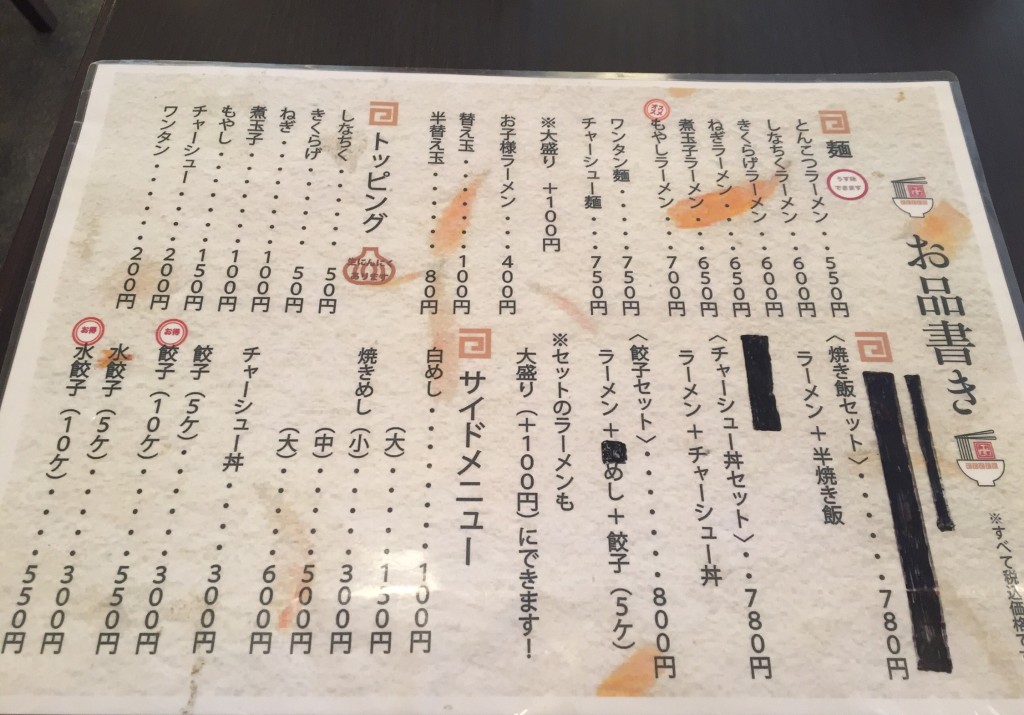 お品書き
※すべて税込価格で
麺
とんこつラーメン・・550円
しなちくラーメン・・600円
きくらげラーメン・・600円
ねぎラーメン・・・・650円
煮玉子ラーメン・・・650円
もやしラーメン・・・700円
ワンタン麺・・・・・750円
チャーシュー麺・・・750円
※大盛り +100円
お子様ラーメン・・・400円
替え玉・・・・・・・100円
半替え玉・・・・・・80円
トッピング
生にんにく
あります
しなちく・・・・50円
きくらげ・・・・50円
ねぎ・・・・・・100円
煮玉子・・・・・100円
もやし・・・・・150円
チャーシュー・・200円
ワンタン・・・・200円
〈焼き飯セット〉・・・・780円
ラーメン+半焼き飯
〈チャーシュー丼セット〉・・780円
ラーメン+チャーシュー丼
〈餃子セット〉・・・・・・800円
ラーメン+めし+餃子（5ケ）
※セットのラーメンも
大盛り（+100円）にできます！
サイドメニュー
白めし・・・・・・・100円
（大）・・・・150円
焼きめし（小）・・・・300円
（中）・・・・500円
（大）・・・・600円
チャーシュー丼・・・・300円
餃子（5ケ）・・・・・300円
お得
餃子（10ケ）・・・・550円
水餃子（5ケ）・・・・300円
お得
水餃子（10ケ）・・・550円